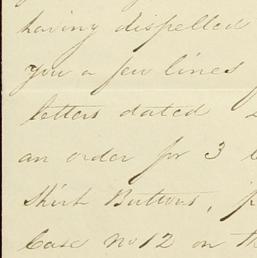 having dispelled
you a few lines
letters dated
an order for 3
Shirt Buttons,
Case No 12 on